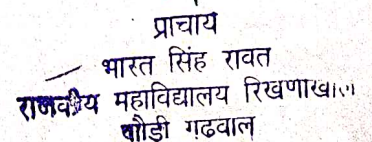 प्राचार्य
भारत सिंह रावत
राजकीय महाविद्यालय रिखणाखाल
पौड़ी गढवाल